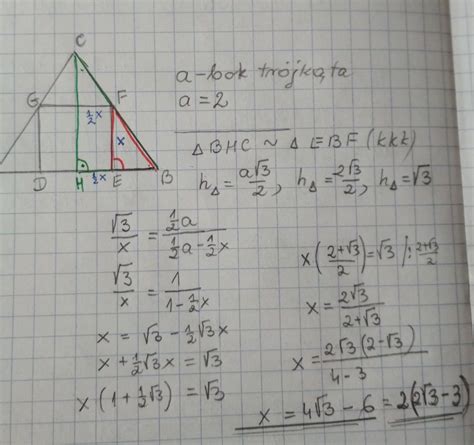 C
G
F
½x
x
½x
D
H
E
B
a - bok trójkąta
a = 2
△BHC ~ △EBF (kkk)
h△ = a√3/2, h△ = 2√3/2, h△ = √3
√3/x = ½a/(½a - ½x)
√3/x = 1/(1 - ½x)
x = √3 - ½√3x
x + ½√3x = √3
x (1 + ½√3) = √3
x ( (2+√3)/2 ) = √3 /: (2+√3)/2
x = 2√3/(2+√3)
x = 2√3(2-√3)/(4-3)
x = 4√3 - 6 = 2(2√3 - 3)